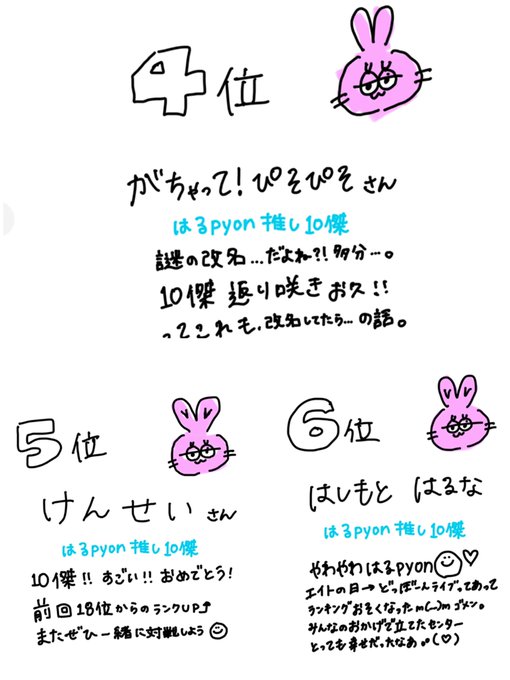 4位
がちゃって!ぴそぴそさん
はるpyon推し10傑
謎の改名…だよね?!多分…。
10傑返り咲きお久!!
ってこれも、改名してたら…の話。
5位
けんせいさん
はるpyon推し10傑
10傑!!すごい!!おめでとう!
前回18位からのランクUP↑
またぜひ一緒に対戦しよう☺
6位
はしもと はるな
はるpyon推し10傑
やわやわはるpyon☺♡
エイトの日→どっぼーんライブってあって
ランキングおそくなったm(__)mゴメン。
みんなのおかげで立てたセンター
とっても幸せだったなぁ。(♡)